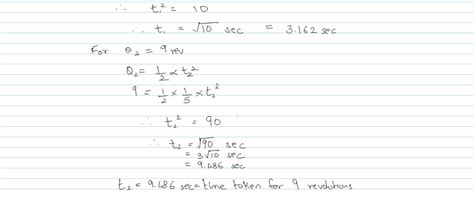 ∴ t₁² = 10
∴ t₁ = √10 sec = 3.162 sec
For θ₂ = 9 rev
θ₂ = 1/2 α t₂²
9 = 1/2 × 1/5 × t₂²
∴ t₂² = 90
∴ t₂ = √90 sec
= 3√10 sec
= 9.486 sec
t₂ = 9.486 sec = time taken for 9 revolutions